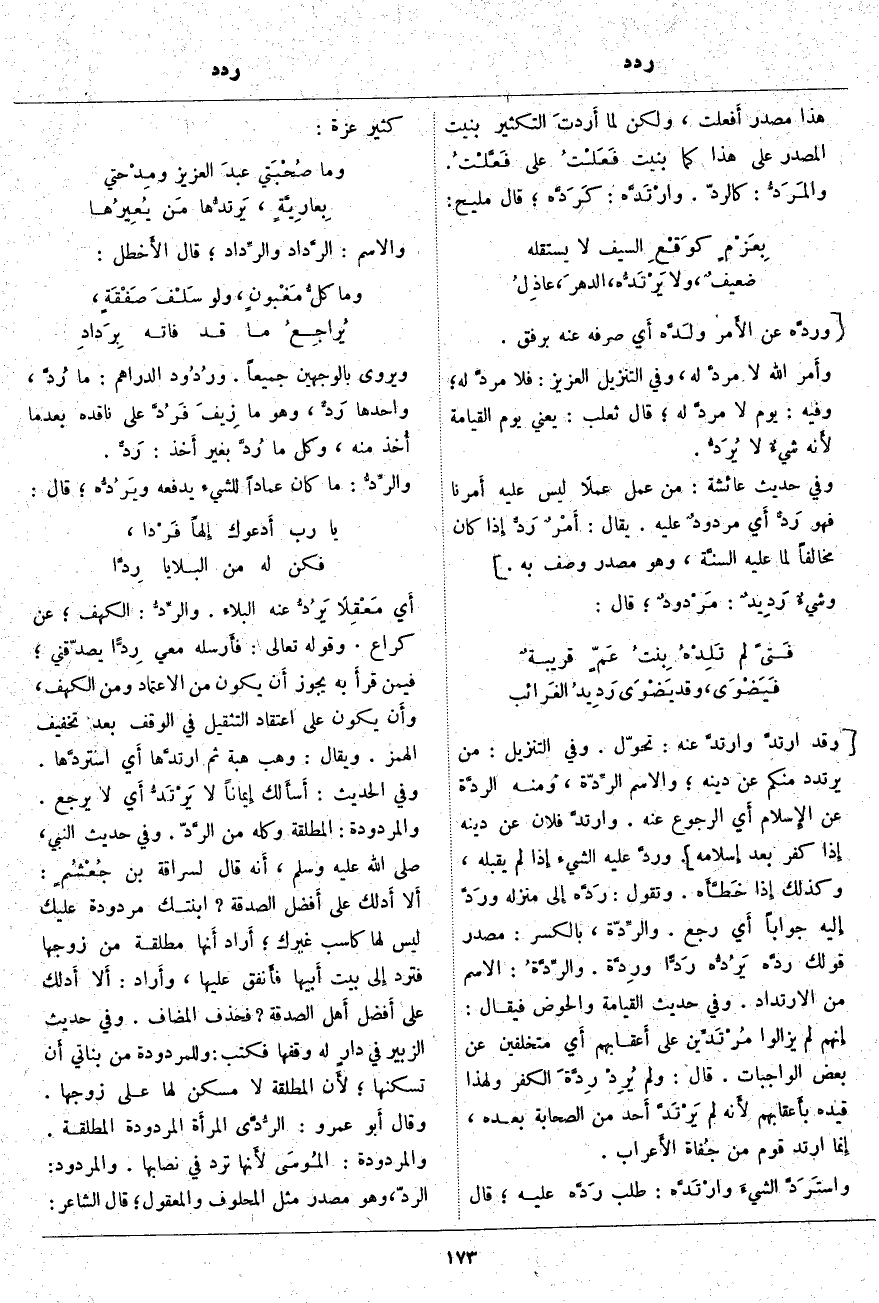 ردد
ردد
هذا مصدر أفعلت ، ولكن لما أردتَ التكثير بنيت
المصدر على هذا كما بنيت فَعَلْتُ على فَعَّلْتُ .
والمَرَدُّ : كالردّ . وارْتَدَّه : كَرَدَّه ؛ قال مليح :
بِعَزْمٍ كوَقْعِ السيف لا يستقله
ضعيفٌ ، ولا يَرْتَدُّه ، الدهرَ ، عاذِلُ
[ورده عن الأمر ولَدَّه أي صرفه عنه برفق .
وأمر الله لا مردَّ له ، وفي التنزيل العزيز : فلا مردَّ له ؛
وفيه : يوم لا مردَّ له ؛ قال ثعلب : يعني يوم القيامة
لأنه شيء لا يُرَدُّ .
وفي حديث عائشة : من عمل عملًا ليس عليه أمرنا
فهو رَدٌّ أي مردودٌ عليه . يقال : أمْرٌ رَدٌّ إذا كان
مخالفاً لما عليه السنَّة ، وهو مصدر وصف به .]
وشيءٌ رَدِيدٌ : مَرْدودٌ ؛ قال :
فَتىً لم تَلِدْهُ بِنتُ عَمٍّ قريبةٌ
فَيَضْوَى ، وقد يَضْوَى رَدِيدُ الغَرائب
[وقد ارتدَّ وارتدَّ عنه : تحوّل . وفي التنزيل : من
يرتدد منكم عن دينه ؛ والاسم الرِّدّة ، ومنه الردَّة
عن الإسلام أي الرجوع عنه . وارتدَّ فلان عن دينه
إذا كفر بعد إسلامه]. وردَّ عليه الشيء إذا لم يقبله ،
وكذلك إذا خَطَّأَه . وتقول : رَدَّه إلى منزله ورَدَّ
إليه جواباً أي رجع . والرِّدّة ، بالكسر : مصدر
قولك ردَّه يَرُدُّه رَدًّا ورِدَّة . والرِّدَّةُ : الاسم
من الارتداد . وفي حديث القيامة والحوض فيقال :
إنهم لم يزالوا مُرْتَدِّين على أعقابهم أي متخلفين عن
بعض الواجبات . قال : ولم يُرِدْ رِدَّةَ الكفر ولهذا
قيده بأعقابهم لأنه لم يَرْتَدَّ أحد من الصحابة بعده ،
إنما ارتد قوم من جُفاة الأعراب .
واستَرَدَّ الشيءَ وارْتَدَّه : طلب رَدَّه عليه ؛ قال
كثير عزة :
وما صُحْبَتي عبدَ العزيز ومِدْحتي
بِعاريَّةٍ ، يَرتدُّها مَن يُعِيرُها
والاسم : الرَّداد والرِّداد ؛ قال الأخطل :
وما كلُّ مَغْبونٍ ، ولو سَلْفَ صَفْقَةٍ ،
يُراجِعُ ما قد فاته بِرَدادِ
ويروى بالوجهين جميعاً . ورُدُود الدراهم : ما رُدَّ ،
واحدها رَدٌّ ، وهو ما زِيفَ فَرُدَّ على ناقده بعدما
أُخذ منه ، وكل ما رُدَّ بغير أخذ : رَدٌّ .
والرِّدُّ : ما كان عماداً للشيء يدفعه ويَرُدُّه ؛ قال :
يا رب أدعوك إلهاً فَرْدا ،
فكن له من البلايا رِدَّا
أي مَعْقِلًا يَرُدُّ عنه البلاء . والرِّدُّ : الكهف ؛ عن
كراع . وقوله تعالى : فأرسله معي رِدًّا يصدّقني ؛
فيمن قرأ به يجوز أن يكون من الاعتماد ومن الكهف ،
وأن يكون على اعتقاد التثقيل في الوقف بعد تخفيف
الهمز . ويقال : وهب هبة ثم ارتدَّها أي استردَّها .
وفي الحديث : أسألك إيماناً لا يَرْتَدُّ أي لا يرجع .
والمردودة : المطلقة وكله من الرَّدّ . وفي حديث النبي ،
صلى الله عليه وسلم ، أنه قال لسراقة بن جُعْشُمٍ :
ألا أدلك على أفضل الصدقة ? ابنتك مردودة عليك
ليس لها كاسب غيرك ؛ أراد أنها مطلقة من زوجها
فترد إلى بيت أبيها فأنفق عليها ، وأراد : ألا أدلك
على أفضل أهل الصدقة ? فحذف المضاف . وفي حديث
الزبير في دارٍ له وقفها فكتب : وللمردودة من بناتي أن
تسكنها ؛ لأن المطلقة لا مسكن لها على زوجها .
وقال أبو عمرو : الرُّدَّى المرأة المردودة المطلقة .
والمردودة : المُوسَى لأنها ترد في نصابها . والمردود :
الردّ ، وهو مصدر مثل المحلوف والمعقول ؛ قال الشاعر :
١٧٣